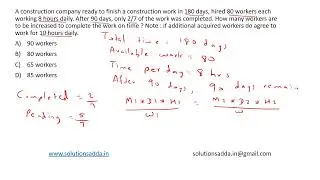 A construction company ready to finish a construction work in 180 days, hired 80 workers each
working 8 hours daily. After 90 days, only 2/7 of the work was completed. How many workers are
to be increased to complete the work on time ? Note : if additional acquired workers do agree to
work for 10 hours daily.
Total time = 180 days
A) 90 workers
Available work = 80
B) 80 workers
Time per day = 8 hours
C) 65 workers
After 90 days, 90 days remain
D) 85 workers
Completed = 2/7
M1*D1*H1 = M2*D2*H2
Pending = 5/7
W1 W
www.solutionsadda.in
solutionsadda.in@gmail.com